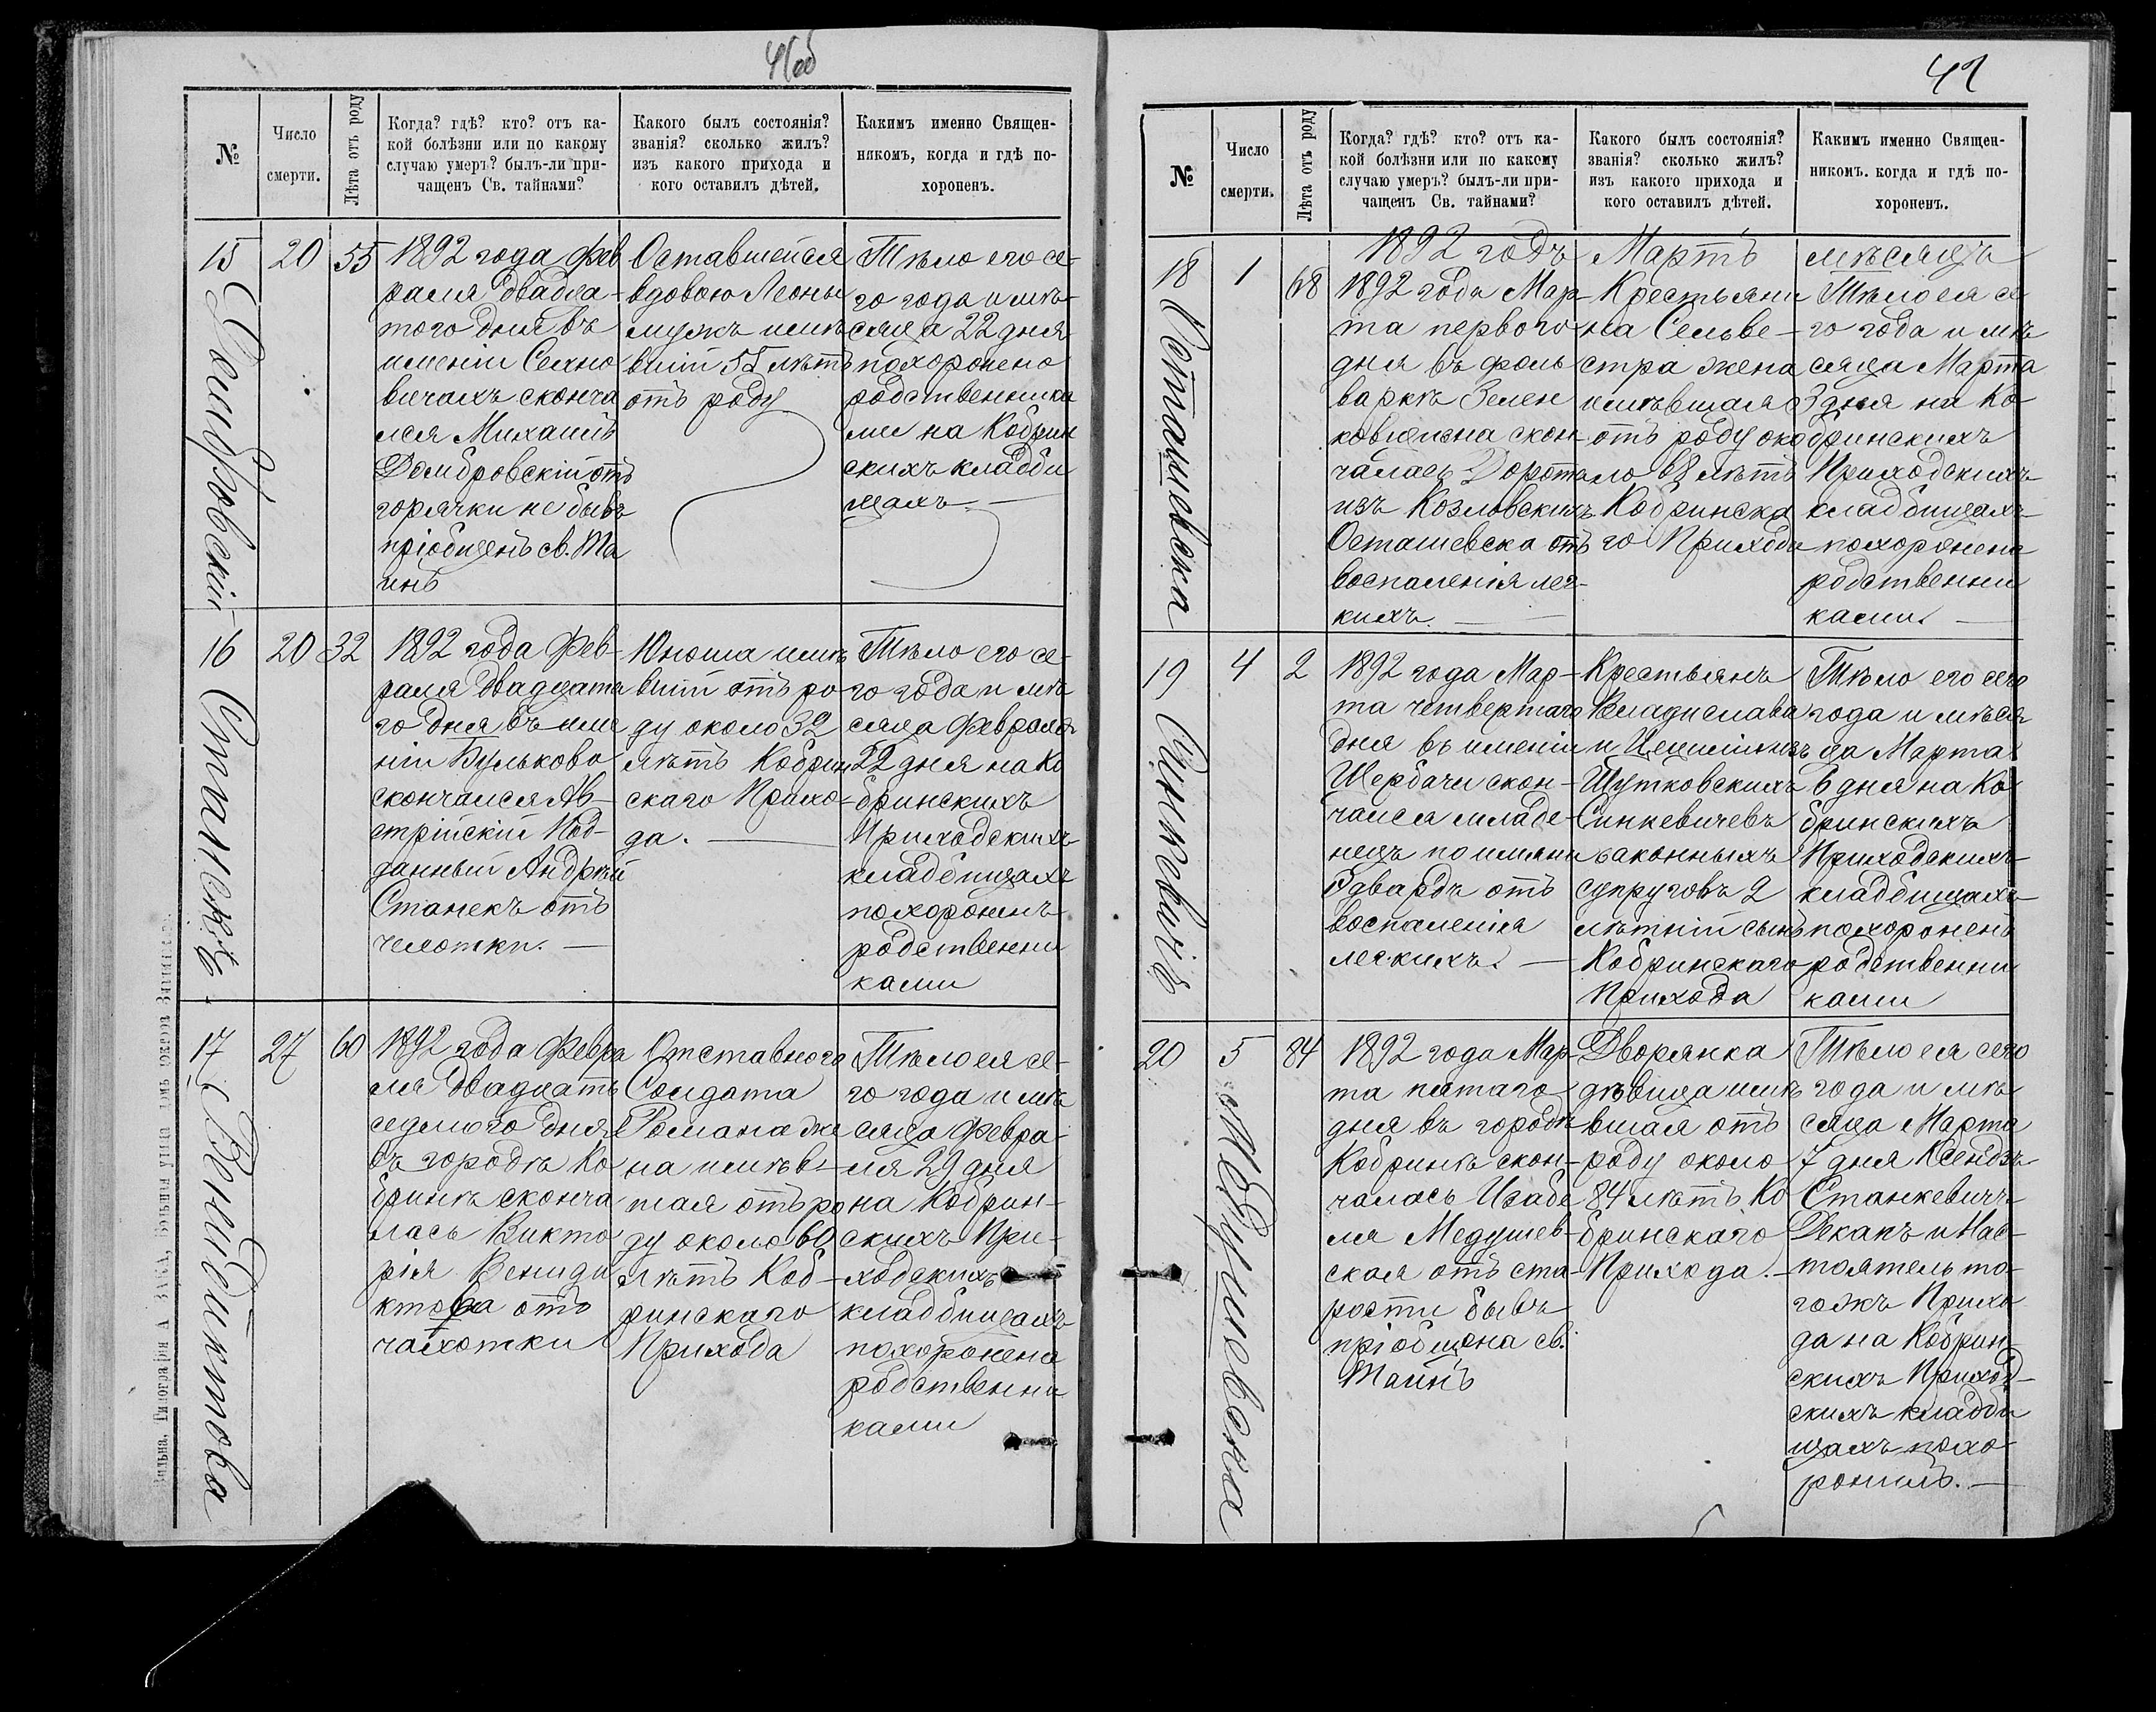 41об
№
Число
смерти.
Лѣта отъ роду
Когда? гдѣ? кто? отъ ка-
кой болѣзни или по какому
случаю умеръ? былъ-ли при-
чащенъ Св. тайнами?
Какого былъ состоянія?
званія? сколько жилъ?
изъ какого прихода и
кого оставилъ дѣтей.
Какимъ именно Священ-
никомъ, когда и гдѣ по-
хороненъ.
15
Домбровскій
20
55
1892 года фев
раля двадца-
того дня въ
имении Селно
вичахъ сконча
лся Михаилъ
Домбровскій отъ
горячки не бывъ
пріобщенъ св. Та
инъ
Оставшейся
вдовою Леоны
мужъ имѣ
вшій 55 лѣтъ
отъ роду
Тѣло его се-
го года и мѣ-
сяца 22 дня
похоронено
родственника
ми на Кобрин
скихъ кладби
щахъ.
16
Станекъ
20
32
1892 года фев-
раля двадцата
го дня въ име
ніи Вульково
скончался Ав-
стрійскій Под-
данный Андрей
Станекъ отъ
чехотки.
Юноша имѣ
вшій отъ ро-
ду около 32
лѣтъ Кобрин
скаго Прихо-
да.
Тѣло его се-
го года и мѣ
сяца Февраля
22 дня на Ко
бринскихъ
Приходскихъ
кладбищахъ
похороненъ
родственни
ками
17
Венидиктова
27
60
1892 года февра
ля двадцать
седмого дня
въ городѣ Ко
бринѣ сконча
лась Викто
рія Вениди
ктова отъ
чахотки
Отставного
Солдата
Романа же
на имѣв-
шая отъ ро
ду около 60
лѣтъ Коб-
ринскаго
Прихода
Тѣло ея се-
го года и мѣ
сяца Февра-
ля 29 дня
на Кобрин-
скихъ При-
ходскихъ
кладбищахъ
похоронена
родственни
ками
Вильна, Типографія А. Зака, Большая улица
42
№
Число
смерти.
Лѣта отъ роду
Когда? гдѣ? кто? отъ ка-
кой болѣзни или по какому
случаю умеръ? былъ-ли при-
чащенъ Св. тайнами?
Какого былъ состоянія?
званія? сколько жилъ?
изъ какого прихода и
кого оставилъ дѣтей.
Какимъ именно Священ-
никомъ. когда и гдѣ по-
хороненъ.
1892 годъ Мартъ мѣсяцъ
18
Осташевска
1
68
1892 года Мар-
та первого
дня въ фоль
варкѣ Зелен
ковщизна скон-
чалась Дорота
изъ Козловскихъ
Осташевска отъ
воспаленія лег-
кихъ.
Крестьяни
на Сельве-
стра жена
имѣвшая
отъ роду око
ло 68 лѣтъ
Кобринска
го Прихода
Тѣло ея се
го года и мѣ
сяца Марта
3 дня на Ко-
бринскихъ
Приходскихъ
кладбищахъ
похоронена
родственни
ками.
19
Синкевичъ
4
2
1892 года Мар-
та четвертаго
дня въ имении
Щербачи скон-
чался младе-
нецъ по имяни
Эдвардъ отъ
воспаленія
легкихъ.
Крестьянъ
Владислава
и Цецилии изъ
Шутковскихъ
Синкевичевъ
законныхъ
супруговъ 2
лѣтній сынъ
Кобринскаго
Прихода
Тѣло его сего
года и мѣся
ца Марта
6 дня на Ко
бринскихъ
Приходскихъ
кладбищахъ
похороненъ
родственни
ками
20
Медушевска
5
84
1892 года Мар-
та пятаго
дня въ городѣ
Кобринѣ скон-
чалась Изабе
ля Медушев-
ская отъ ста-
рости бывъ
пріобщена св.
Таинъ
Дворянка
дѣвица имѣ
вшая отъ
роду около
84 лѣтъ Ко
бринскаго
Прихода.
Тѣло ея сего
года и мѣ-
сяца Марта
7 дня Ксендзъ
Станкевичъ
Деканъ и Нас-
тоятель то-
гожъ Прихо
да на Кобрин-
скихъ Приход-
скихъ кладби
щахъ похо
ронилъ.